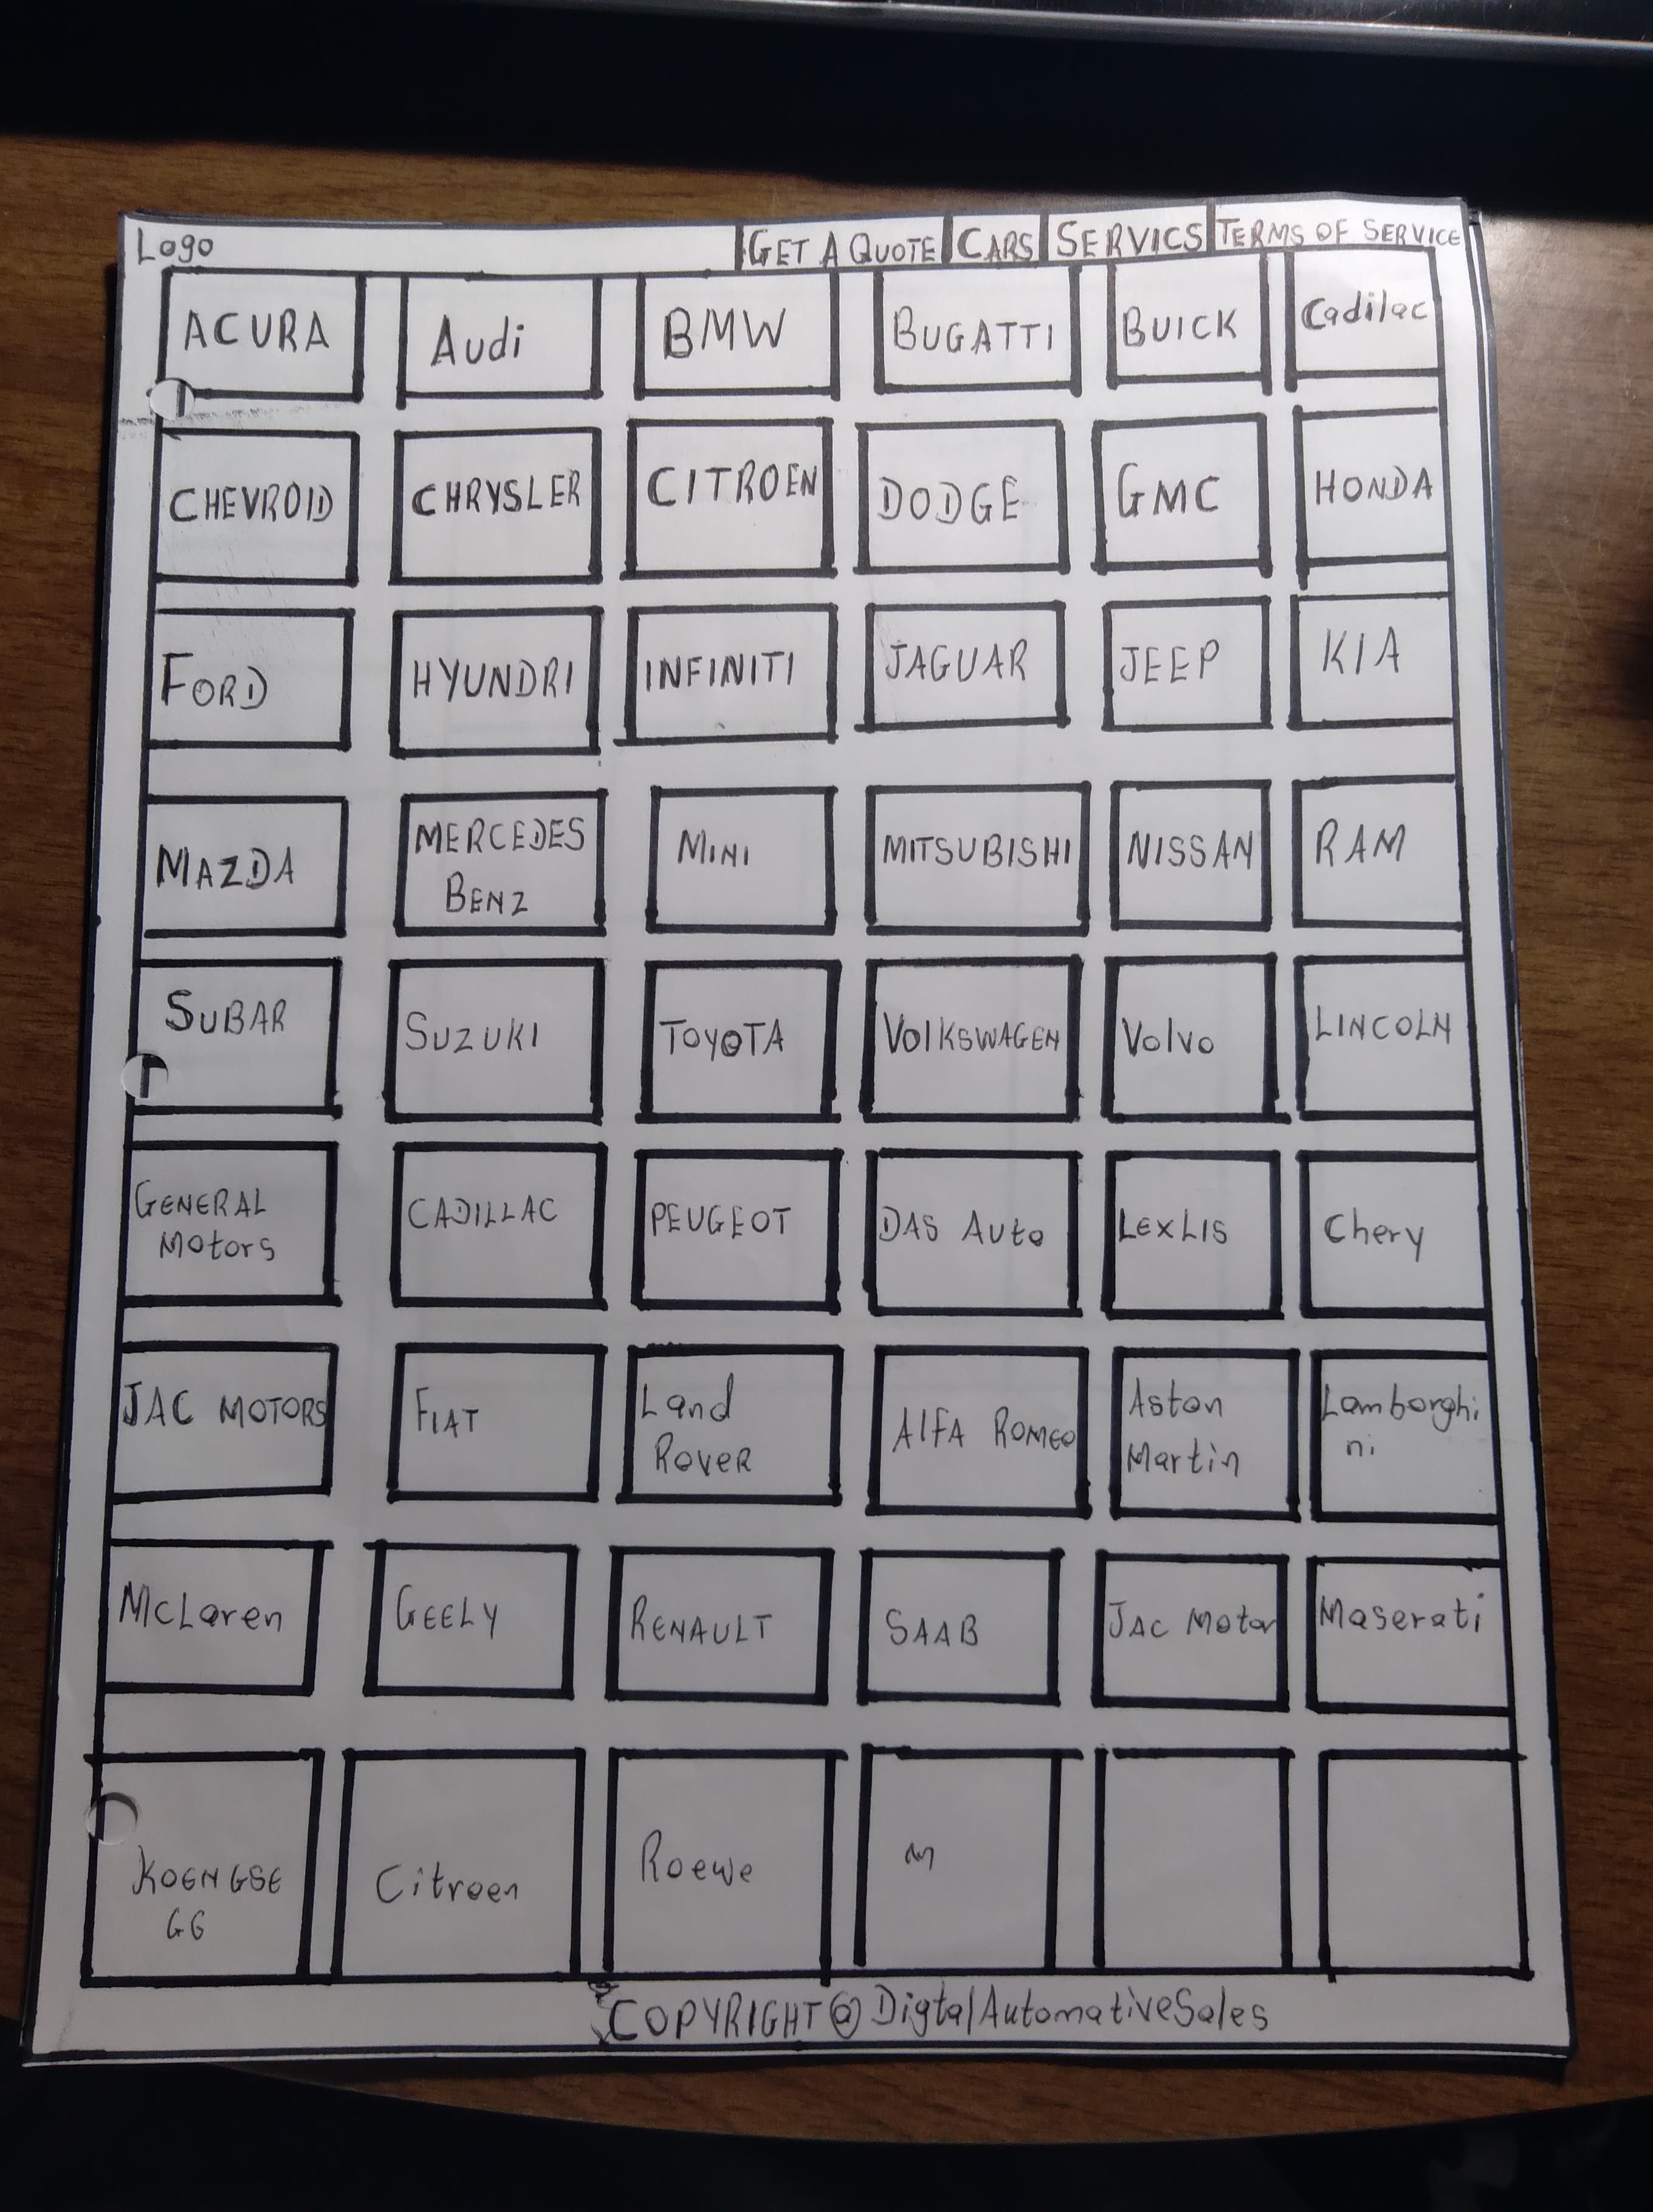 Logo GET A QUOTE CARS SERVICS TERMS OF SERVICE
ACURA Audi BMW BUGATTI BUICK Cadilac
CHEVROID CHRYSLER CITROEN DODGE GMC HONDA
FORD HYUNDRI INFINITI JAGUAR JEEP KIA
MAZDA MERCEDES MINI MITSUBISHI NISSAN RAM
BENZ
SUBAR SUZUKI TOYOTA VOlKSWAGEN Volvo LINCOLN
GENERAL CADILLAC PEUGEOT DAS Auto LEXLIS Chery
Motors
JAC MOTORS FIAT Land AlFA ROMEO Aston Lamborghi
Rover Martin ni
McLaren GEELY RENAULT SAAB JAC Motor Maserati
KOENGSE Citroen Roewe
GG
COPYRIGHT@DigtalAutomativeSales